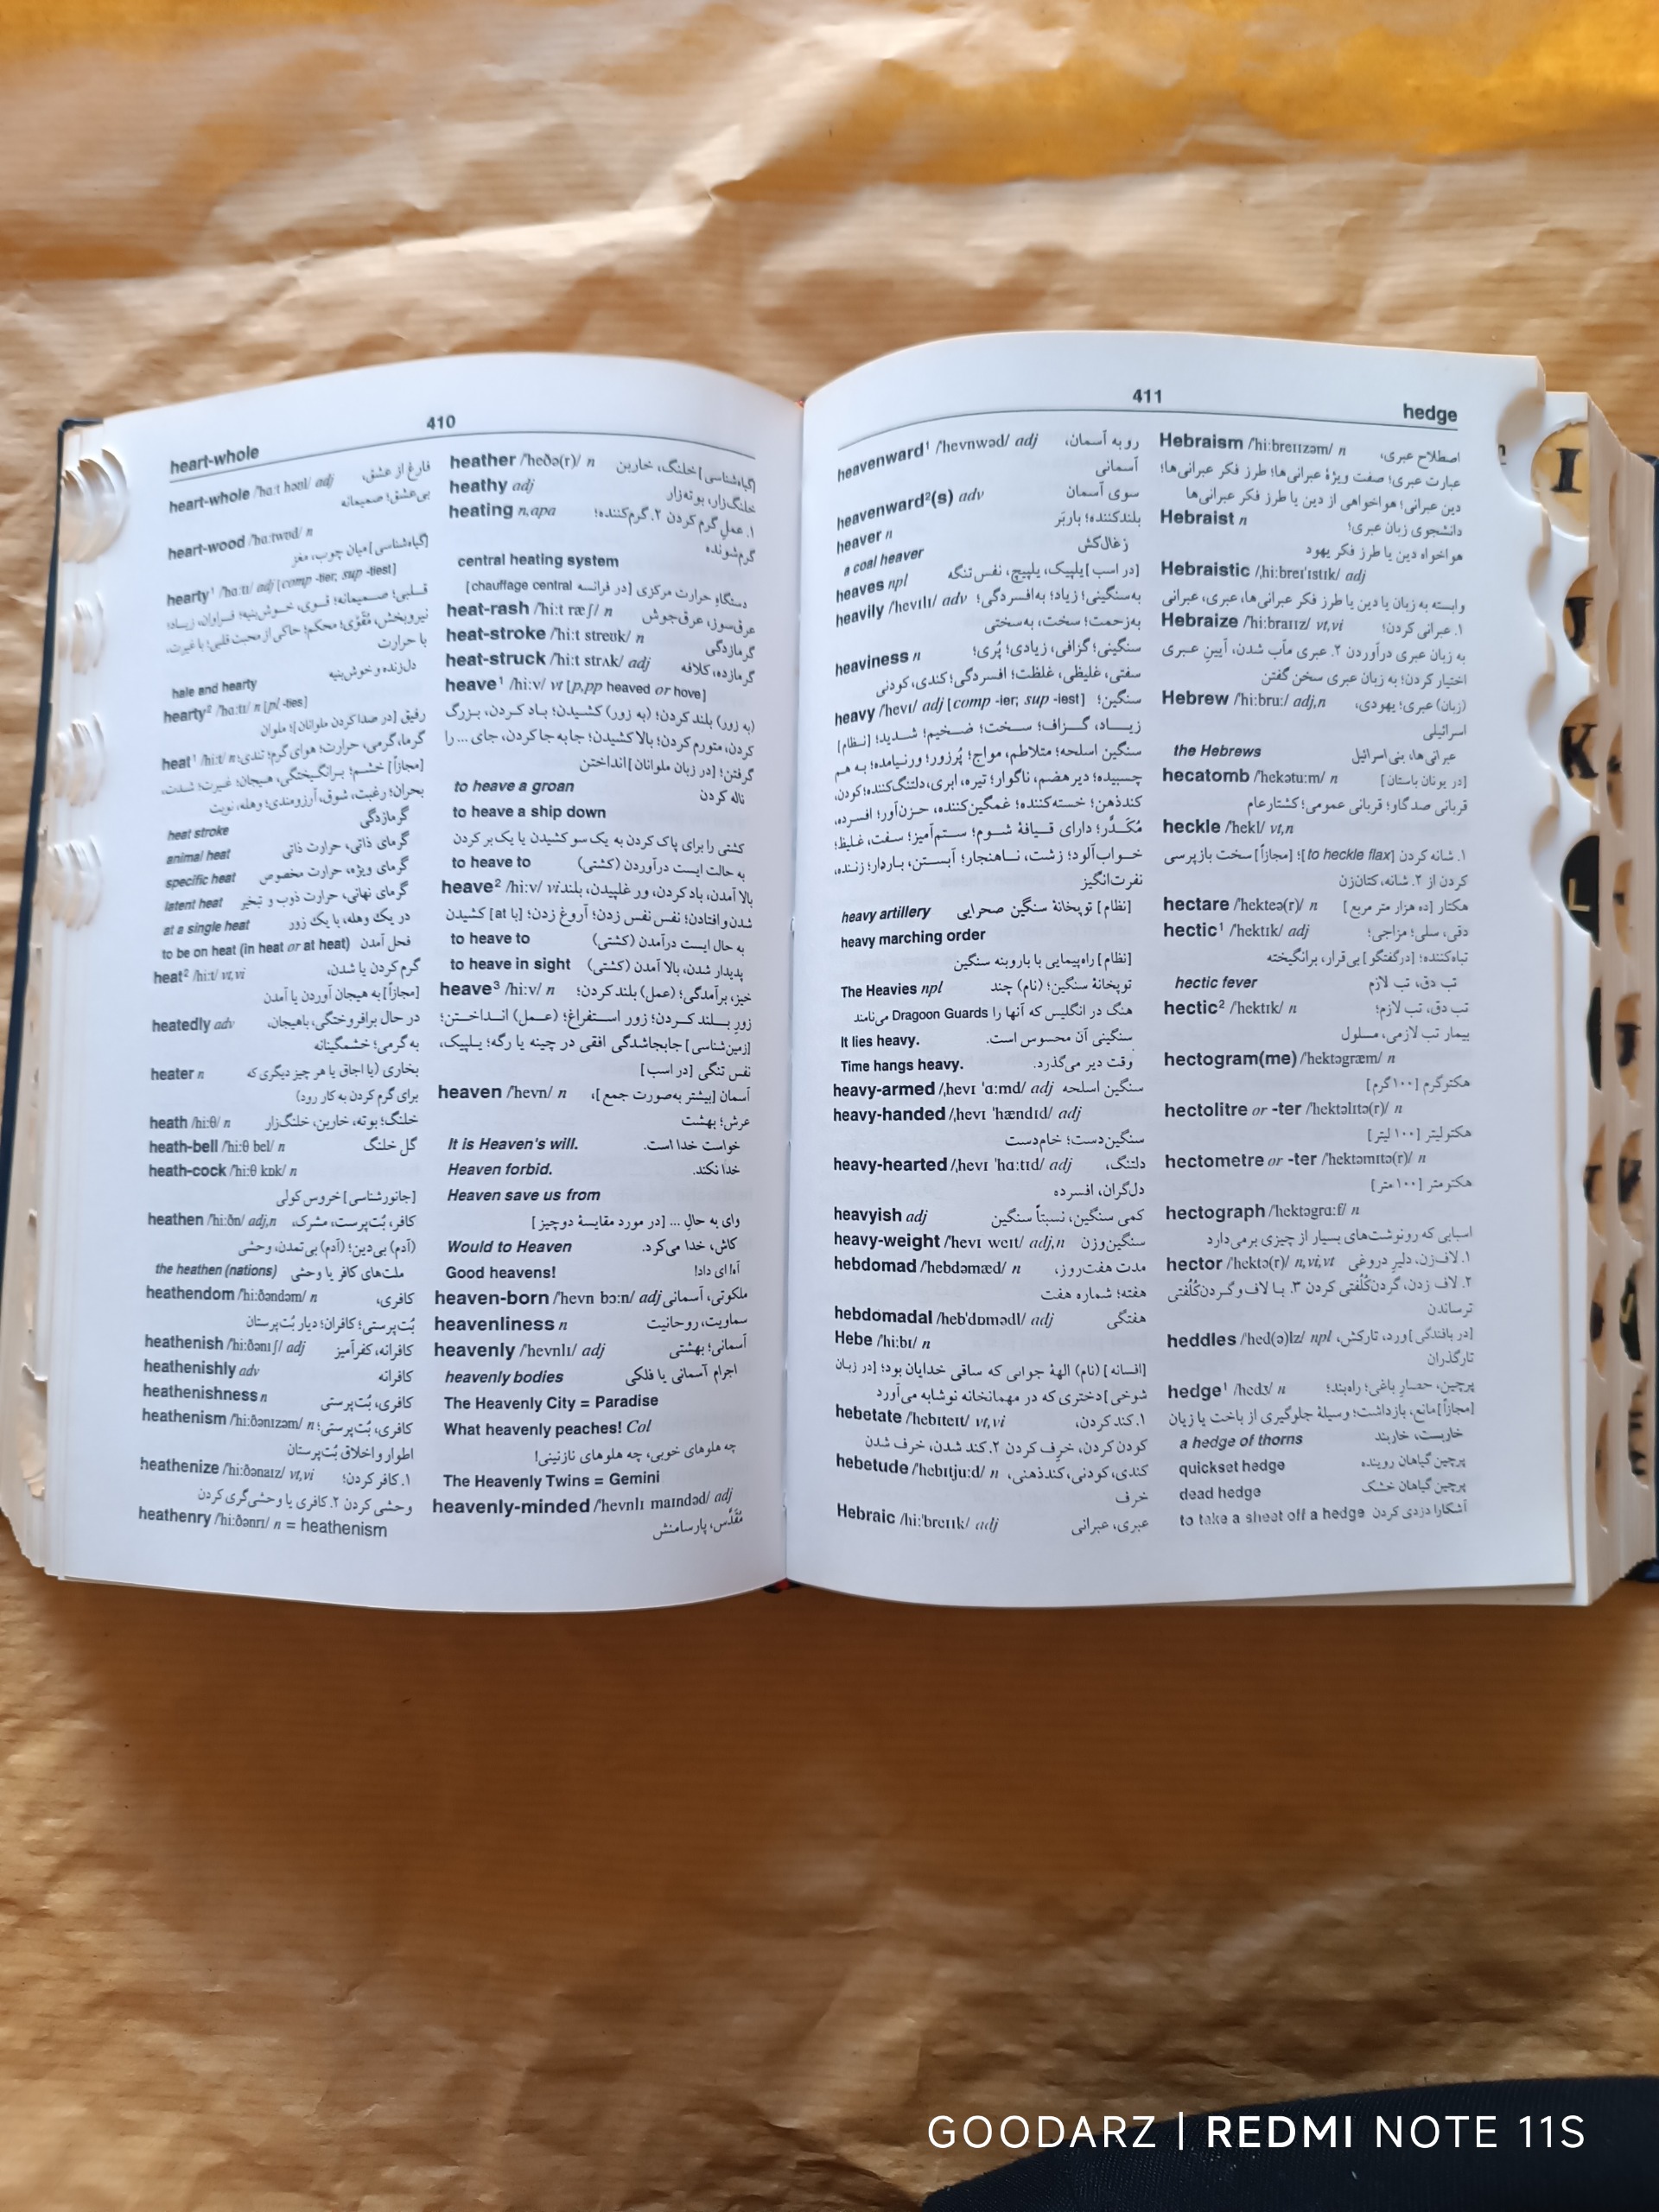 heart-whole
410
heart-whole /'hɑ:t həʊl/ adj فارغ از عشق،
بی‌عشق؛ صمیمانه
heart-wood /'hɑ:twʊd/ n
[گیاه‌شناسی] میان چوب، مغز
hearty¹ /'hɑ:tɪ/ adj [comp -tier; sup -tiest]
قلبی؛ صمیمانه؛ قوی، خوش‌بنیه؛ فراوان، زیاد؛
نیروبخش، مُقَوّی؛ محکم؛ حاکی از محبت قلبی؛ با غیرت،
با حرارت
hale and hearty دل‌زنده و خوش‌بنیه
hearty² /'hɑ:tɪ/ n [pl -ties]
رفیق [در صدا کردن ملوانان]؛ ملوان
heat¹ /hi:t/ n گرما، گرمی، حرارت؛ هوای گرم؛ تندی؛
[مجازاً] خشم؛ برانگیختگی، هیجان؛ غیرت؛ شدت،
بحران؛ رغبت، شوق، آرزومندی؛ وهله، نوبت
heat stroke گرمازدگی
animal heat گرمای ذاتی، حرارت ذاتی
specific heat گرمای ویژه، حرارت مخصوص
latent heat گرمای نهانی، حرارت ذوب و تبخیر
at a single heat در یک وهله، با یک زور
to be on heat (in heat or at heat) فحل آمدن
heat² /hi:t/ vt,vi گرم کردن یا شدن،
[مجازاً] به هیجان آوردن یا آمدن
heatedly adv در حال برافروختگی، باهیجان،
به گرمی؛ خشمگینانه
heater n بخاری (یا اجاق یا هر چیز دیگری که
برای گرم کردن به کار رود)
heath /hi:θ/ n خلنگ؛ بوته، خاربن، خلنگ‌زار
heath-bell /hi:θ bel/ n گل خلنگ
heath-cock /hi:θ kɒk/ n
[جانورشناسی] خروس کولی
heathen /'hi:ðn/ adj,n کافر، بُت‌پرست، مشرک،
(آدم) بی‌دین؛ (آدم) بی‌تمدن، وحشی
the heathen (nations) ملت‌های کافر یا وحشی
heathendom /'hi:ðəndəm/ n کافری،
بُت‌پرستی؛ کافران؛ دیار بُت‌پرستان
heathenish /'hi:ðənɪʃ/ adj کافرانه، کفرآمیز
heathenishly adv کافرانه
heathenishness n کافری، بُت‌پرستی
heathenism /'hi:ðənɪzəm/ n کافری، بُت‌پرستی؛
اطوار و اخلاق بُت‌پرستان
heathenize /'hi:ðənaɪz/ vt,vi ۱. کافر کردن؛
وحشی کردن ۲. کافری یا وحشی‌گری کردن
heathenry /'hi:ðənrɪ/ n = heathenism
heather /'heðə(r)/ n [گیاه‌شناسی] خلنگ، خاربن
heathy adj خلنگ‌زار، بوته‌زار
heating n,apa ۱. عملِ گرم کردن ۲. گرم‌کننده؛
گرم‌شونده
central heating system
دستگاهِ حرارت مرکزی [در فرانسه chauffage central]
heat-rash /'hi:t ræʃ/ n عرق‌سوز، عرق‌جوش
heat-stroke /'hi:t strəʊk/ n گرمازدگی
heat-struck /'hi:t strʌk/ adj گرمازده، کلافه
heave¹ /hi:v/ vt [p,pp heaved or hove]
(به زور) بلند کردن؛ (به زور) کشیدن؛ باد کردن، بزرگ
کردن، متورم کردن؛ بالا کشیدن؛ جا به جا کردن، جای ... را
گرفتن؛ [در زبان ملوانان] انداختن
to heave a groan ناله کردن
to heave a ship down
کشتی را برای پاک کردن به یک سو کشیدن یا یک‌بر کردن
to heave to به حالت ایست درآوردن (کشتی)
heave² /hi:v/ vi بالا آمدن، باد کردن، ور غلپیدن، بلند
شدن و افتادن؛ نفس نفس زدن؛ آروغ زدن؛ [با at] کشیدن
to heave to به حال ایست درآمدن (کشتی)
to heave in sight پدیدار شدن، بالا آمدن (کشتی)
heave³ /hi:v/ n خیز، برآمدگی؛ (عمل) بلند کردن؛
زورِ بلند کردن؛ زور استفراغ؛ (عمل) انداختن؛
[زمین‌شناسی] جابجاشدگی افقی در چینه یا رگه؛ یلپیک،
نفس تنگی [در اسب]
heaven /'hevn/ n آسمان [بیشتر به‌صورت جمع]،
عرش؛ بهشت
It is Heaven's will. خواست خدا است.
Heaven forbid. خدا نکند.
Heaven save us from
وای به حالِ ... [در مورد مقایسهٔ دوچیز]
Would to Heaven کاش، خدا می‌کرد.
Good heavens! آه! ای داد!
heaven-born /'hevn bɔ:n/ adj ملکوتی، آسمانی
heavenliness n سماویت، روحانیت
heavenly /'hevnlɪ/ adj آسمانی؛ بهشتی
heavenly bodies اجرام آسمانی یا فلکی
The Heavenly City = Paradise
What heavenly peaches! Col
چه هلوهای خوبی، چه هلوهای نازنینی!
The Heavenly Twins = Gemini
heavenly-minded /'hevnlɪ maɪndəd/ adj
مُقَدَّس، پارسامنش
411
hedge
heavenward¹ /'hevnwəd/ adj رو به آسمان،
آسمانی
heavenward²(s) adv سوی آسمان
heaver n بلندکننده؛ باربَر
a coal heaver زغال‌کش
heaves npl [در اسب] یلپیک، یلپیچ، نفس‌تنگه
heavily /'hevɪlɪ/ adv به‌سنگینی؛ زیاد؛ به‌افسردگی؛
به‌زحمت؛ سخت، به‌سختی
heaviness n سنگینی؛ گزافی، زیادی؛ پُری؛
سفتی، غلیظی، غلظت؛ افسردگی؛ کندی، کودنی
heavy /'hevɪ/ adj [comp -ier; sup -iest] سنگین؛
زیاد، گزاف؛ سخت؛ ضخیم؛ شدید؛ [نظام]
سنگین اسلحه؛ متلاطم، مواج؛ پُرزور؛ ورنیامده؛ به هم
چسبیده؛ دیرهضم، ناگوار؛ تیره، ابری، دلتنگ‌کننده؛ کودن،
کندذهن؛ خسته‌کننده؛ غمگین‌کننده، حزن‌آور؛ افسرده،
مُکَدَّر؛ دارای قیافهٔ شوم؛ ستم‌آمیز؛ سفت، غلیظ؛
خواب‌آلود؛ زشت، ناهنجار؛ آبستن، باردار؛ زننده،
نفرت‌انگیز
heavy artillery [نظام] توپخانهٔ سنگین صحرایی
heavy marching order
[نظام] راه‌پیمایی با باروبنه سنگین
The Heavies npl توپخانهٔ سنگین؛ (نام) چند
هنگ در انگلیس که آنها را Dragoon Guards می‌نامند
It lies heavy. سنگینی آن محسوس است.
Time hangs heavy. وقت دیر می‌گذرد.
heavy-armed /,hevɪ 'ɑ:md/ adj سنگین اسلحه
heavy-handed /,hevɪ 'hændɪd/ adj
سنگین‌دست؛ خام‌دست
heavy-hearted /,hevɪ 'hɑ:tɪd/ adj دلتنگ،
دل‌گران، افسرده
heavyish adj کمی سنگین، نسبتاً سنگین
heavy-weight /'hevɪ weɪt/ adj,n سنگین‌وزن
hebdomad /'hebdəmæd/ n مدت هفت‌روز،
هفته؛ شماره هفت
hebdomadal /heb'dɒmədl/ adj هفتگی
Hebe /'hi:bɪ/ n
[افسانه] (نام) الههٔ جوانی که ساقی خدایان بود؛ [در زبان
شوخی] دختری که در مهمانخانه نوشابه می‌آورد
hebetate /'hebɪteɪt/ vt,vi ۱. کند کردن،
کودن کردن، خرِف کردن ۲. کند شدن، خرف شدن
hebetude /'hebɪtju:d/ n کندی، کودنی، کندذهنی،
خرف
Hebraic /hi:'breɪɪk/ adj عبری، عبرانی
Hebraism /'hi:breɪɪzəm/ n اصطلاح عبری،
عبارت عبری؛ صفت ویژهٔ عبرانی‌ها؛ طرز فکر عبرانی‌ها؛
دین عبرانی؛ هواخواهی از دین یا طرز فکر عبرانی‌ها
Hebraist n دانشجوی زبان عبری؛
هواخواه دین یا طرز فکر یهود
Hebraistic /,hi:breɪ'ɪstɪk/ adj
وابسته به زبان یا دین یا طرز فکر عبرانی‌ها، عبری، عبرانی
Hebraize /'hi:braɪɪz/ vt,vi ۱. عبرانی کردن؛
به زبان عبری درآوردن ۲. عبری مآب شدن، آیینِ عبری
اختیار کردن؛ به زبان عبری سخن گفتن
Hebrew /'hi:bru:/ adj,n (زبان) عبری؛ یهودی،
اسرائیلی
the Hebrews عبرانی‌ها، بنی‌اسرائیل
hecatomb /'hekətu:m/ n [در یونان باستان]
قربانی صد گاو؛ قربانی عمومی؛ کشتار عام
heckle /'hekl/ vt,n
۱. شانه کردن [to heckle flax]؛ [مجازاً] سخت بازپرسی
کردن از ۲. شانه، کتان‌زن
hectare /'hekteə(r)/ n هکتار [ده هزار متر مربع]
hectic¹ /'hektɪk/ adj دقی، سلی؛ مزاجی؛
تباه‌کننده؛ [درگفتگو] بی‌قرار، برانگیخته
hectic fever تب دق، تب لازم
hectic² /'hektɪk/ n تب دق، تب لازم؛
بیمار تب لازمی، مسلول
hectogram(me) /'hektəgræm/ n
هکتوگرم [۱۰۰ گرم]
hectolitre or -ter /'hektəlɪtə(r)/ n
هکتولیتر [۱۰۰ لیتر]
hectometre or -ter /'hektəmɪtə(r)/ n
هکتومتر [۱۰۰ متر]
hectograph /'hektəgrɑ:f/ n
اسبابی که رونوشت‌های بسیار از چیزی برمی‌دارد
hector /'hektə(r)/ n,vi,vt ۱. لاف‌زن، دلیرِ دروغی
۲. لاف زدن، گردن‌کُلُفتی کردن ۳. با لاف و گردن‌کُلُفتی
ترساندن
heddles /'hed(ə)lz/ npl [در بافندگی] ورد، تارکش،
تارگذران
hedge¹ /hedʒ/ n پرچین، حصارِ باغی؛ راه‌بند؛
[مجازاً] مانع، بازداشت؛ وسیلهٔ جلوگیری از باخت یا زیان
a hedge of thorns خاربست، خاربند
quickset hedge پرچین گیاهان روینده
dead hedge پرچین گیاهان خشک
to take a sheet off a hedge آشکارا دزدی کردن
I
J
K
L
GOODARZ | REDMI NOTE 11S